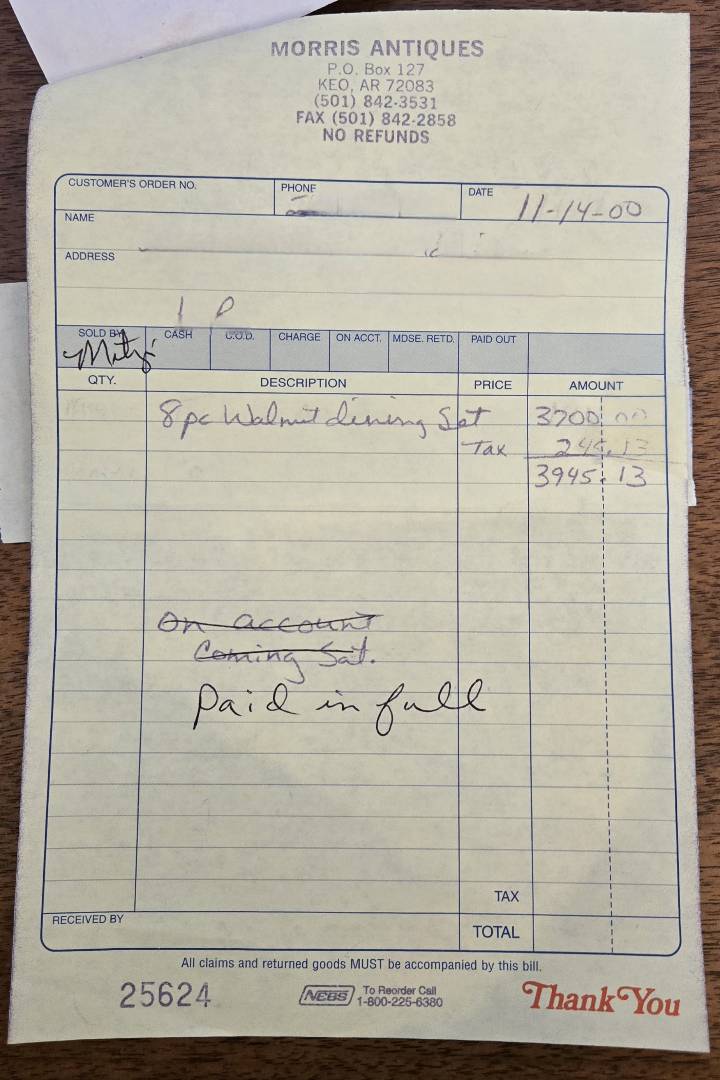 MORRIS ANTIQUES
P.O. Box 127
KEO, AR 72083
(501) 842-3531
FAX (501) 842-2858
NO REFUNDS
CUSTOMER'S ORDER NO. PHONE DATE 11-14-00
NAME
ADDRESS
SOLD BY CASH C.O.D. CHARGE ON ACCT. MDSE. RETD. PAID OUT
Mitzi
QTY. DESCRIPTION PRICE AMOUNT
8 pc Walnut dining Set 3700.00
Tax 245.13
3945.13
On account
Coming Sat.
Paid in full
TAX
RECEIVED BY
TOTAL
All claims and returned goods MUST be accompanied by this bill.
25624 NEBS To Reorder Call Thank You
1-800-225-6380